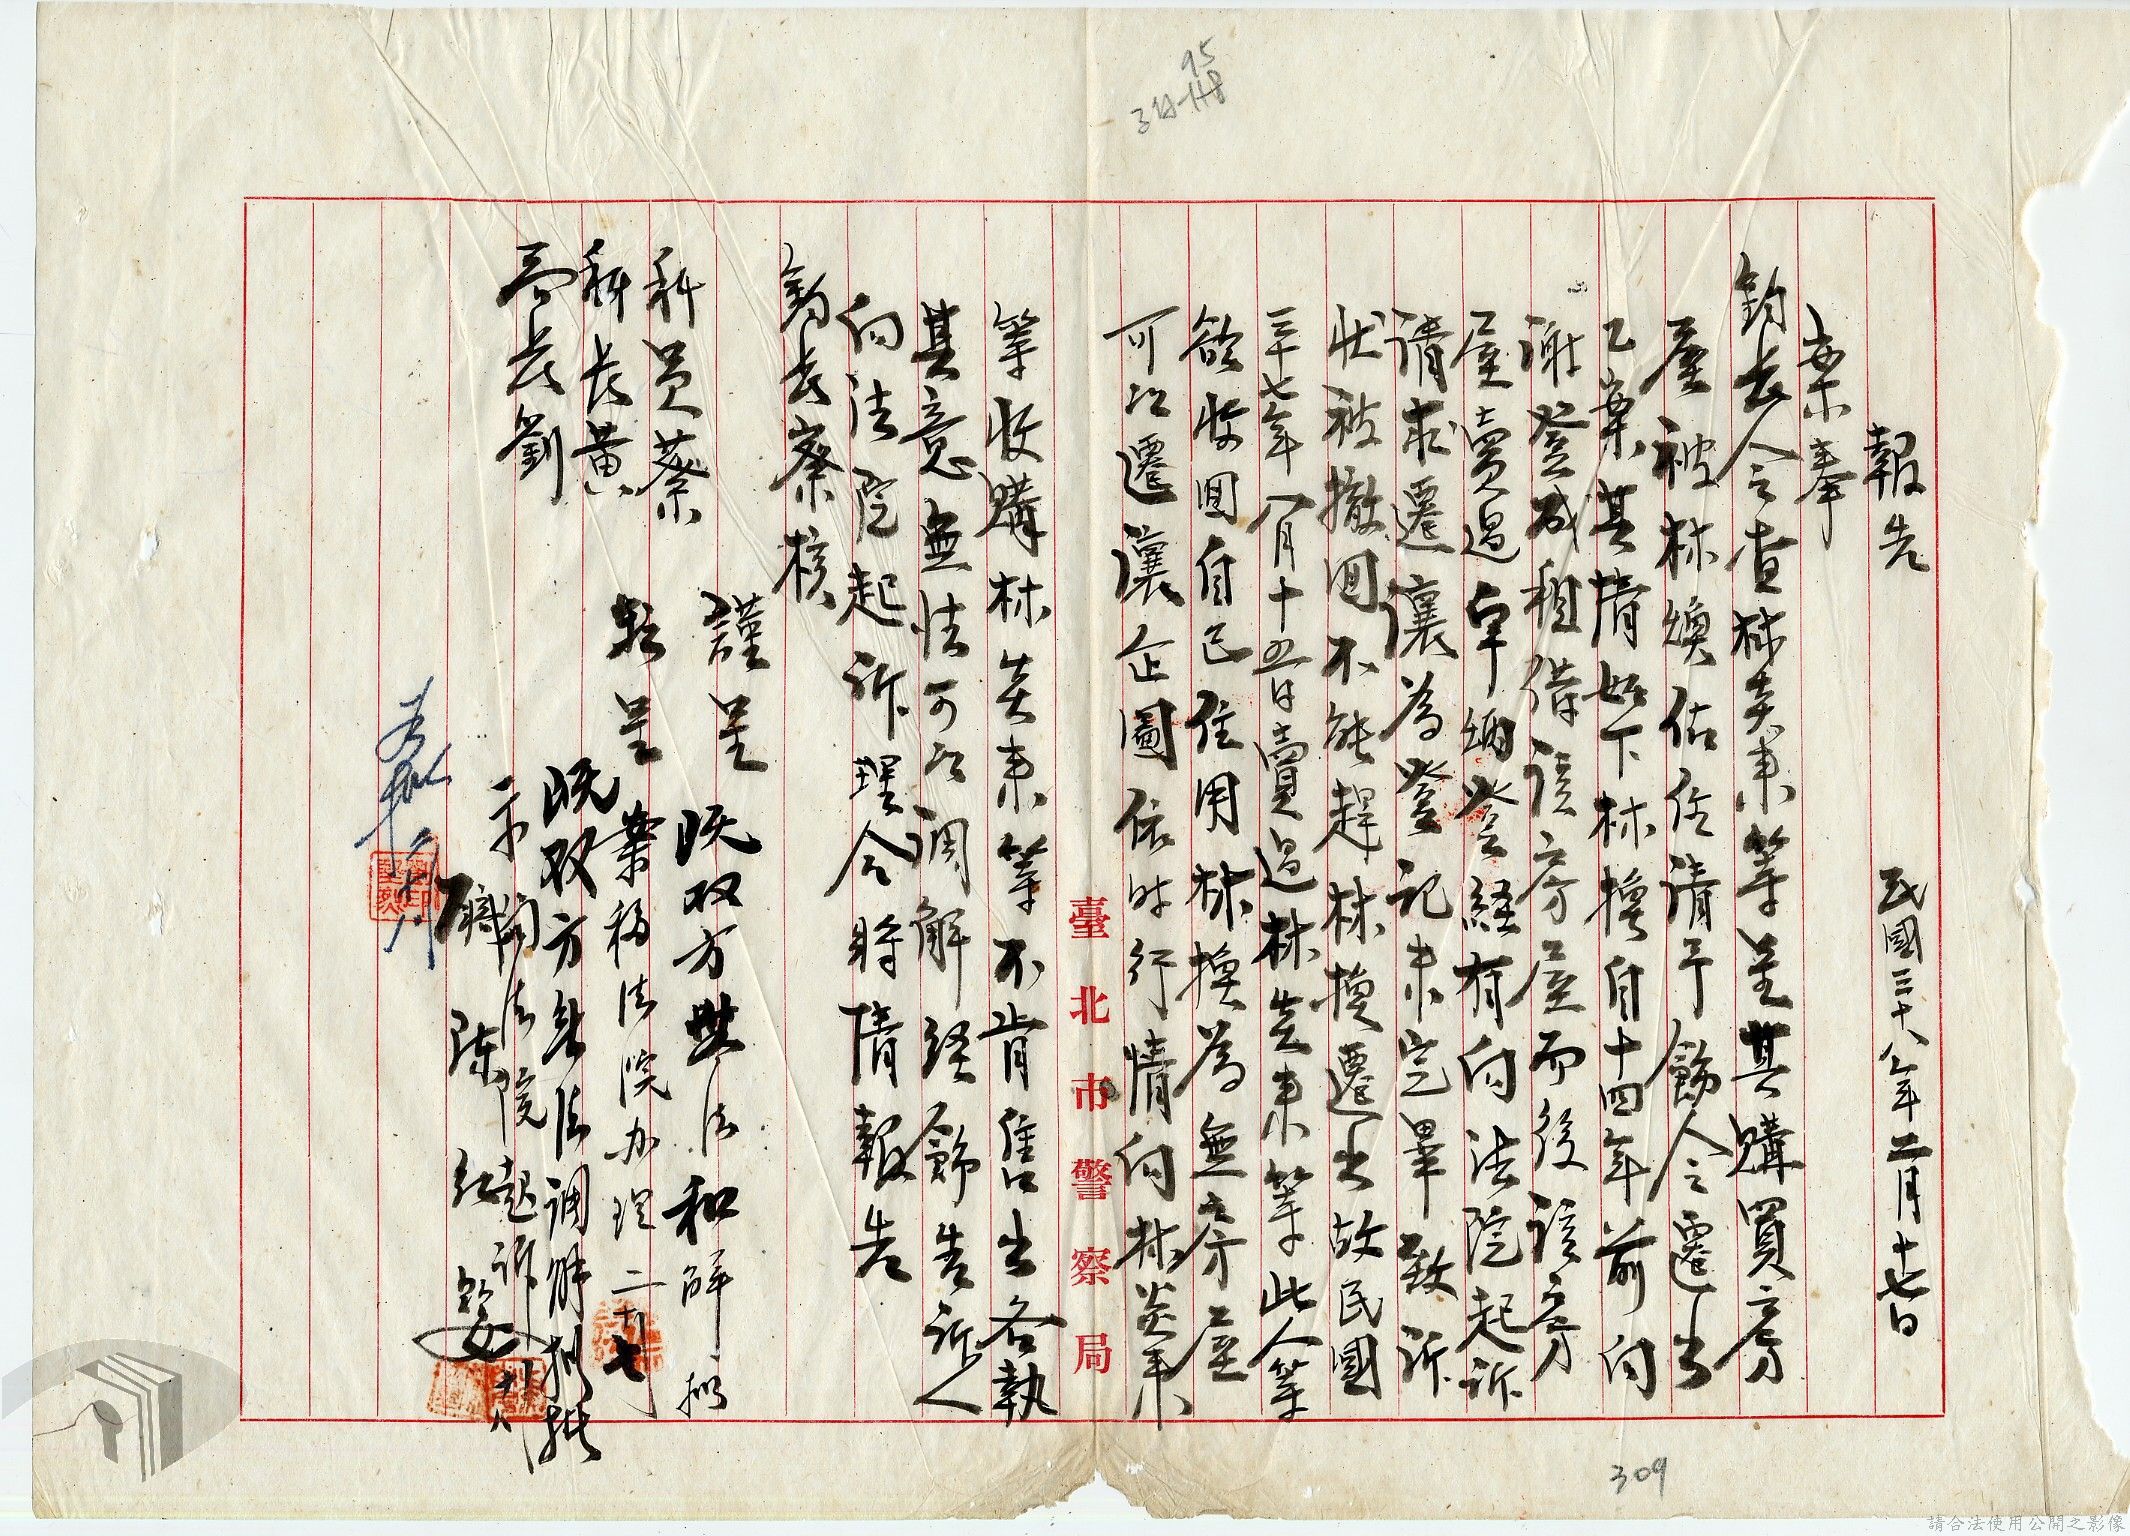 95
309
報告
民國三十八年二月十七日
案奉
鈞長令查林炎東等呈其購買房
屋被林煥佔住請予飭令遷出
乙案其情如下林換自十四年前向
謝登成租借該房屋而後該房
屋賣過 納登経有向法院起訴
請求遷讓為登記未完畢致訴
狀被撤囬不能趕林換遷出故民國
三十七年八月十五日賣過林炎東等此人等
欲收囬自己住用林換為無房屋
可以遷讓企圖依時行情向林炎東
臺北市警察局
等收購林炎東等不肯售出各執
其意無法可以調解経飭告訴人
向法院起訴理合將情報告
鈞長察核
謹呈
科員蔡
轉呈
科長黃
局長劉
既双方無法和解擬
業移法院办理
二十七
既双方無法調解擬批
示向法院起訴
職 陳紅
請合法使用公開之影像